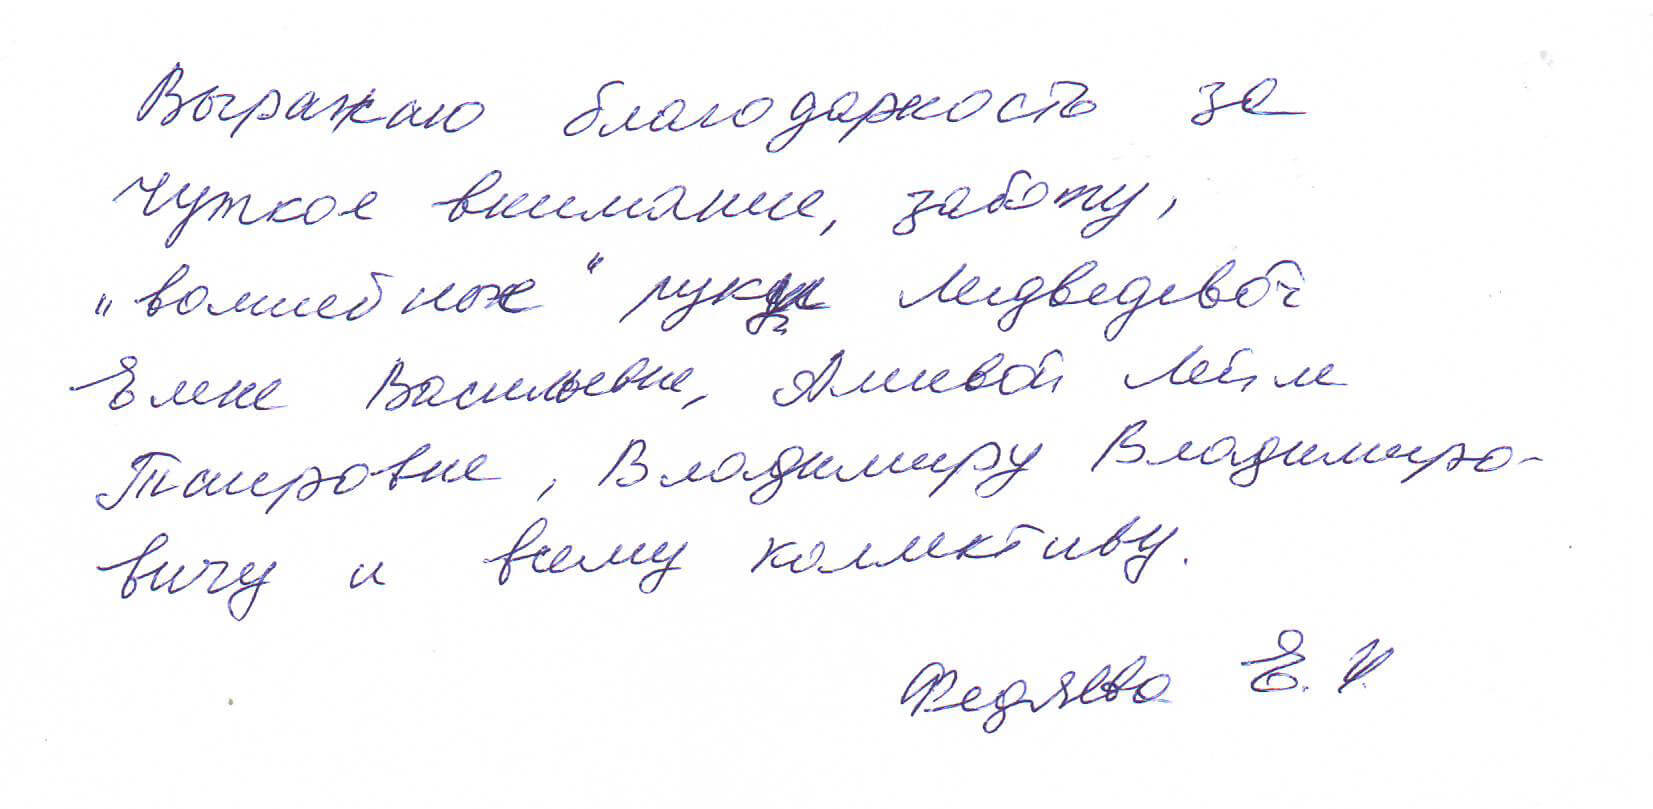 Выражаю благодарность за
чуткое внимание, заботу,
„волшебные“ руки Медведевой
Елене Васильевне, Алиевой Лейле
Таировне, Владимиру Владимиро-
вичу и всему колективу.
Федяева Е.